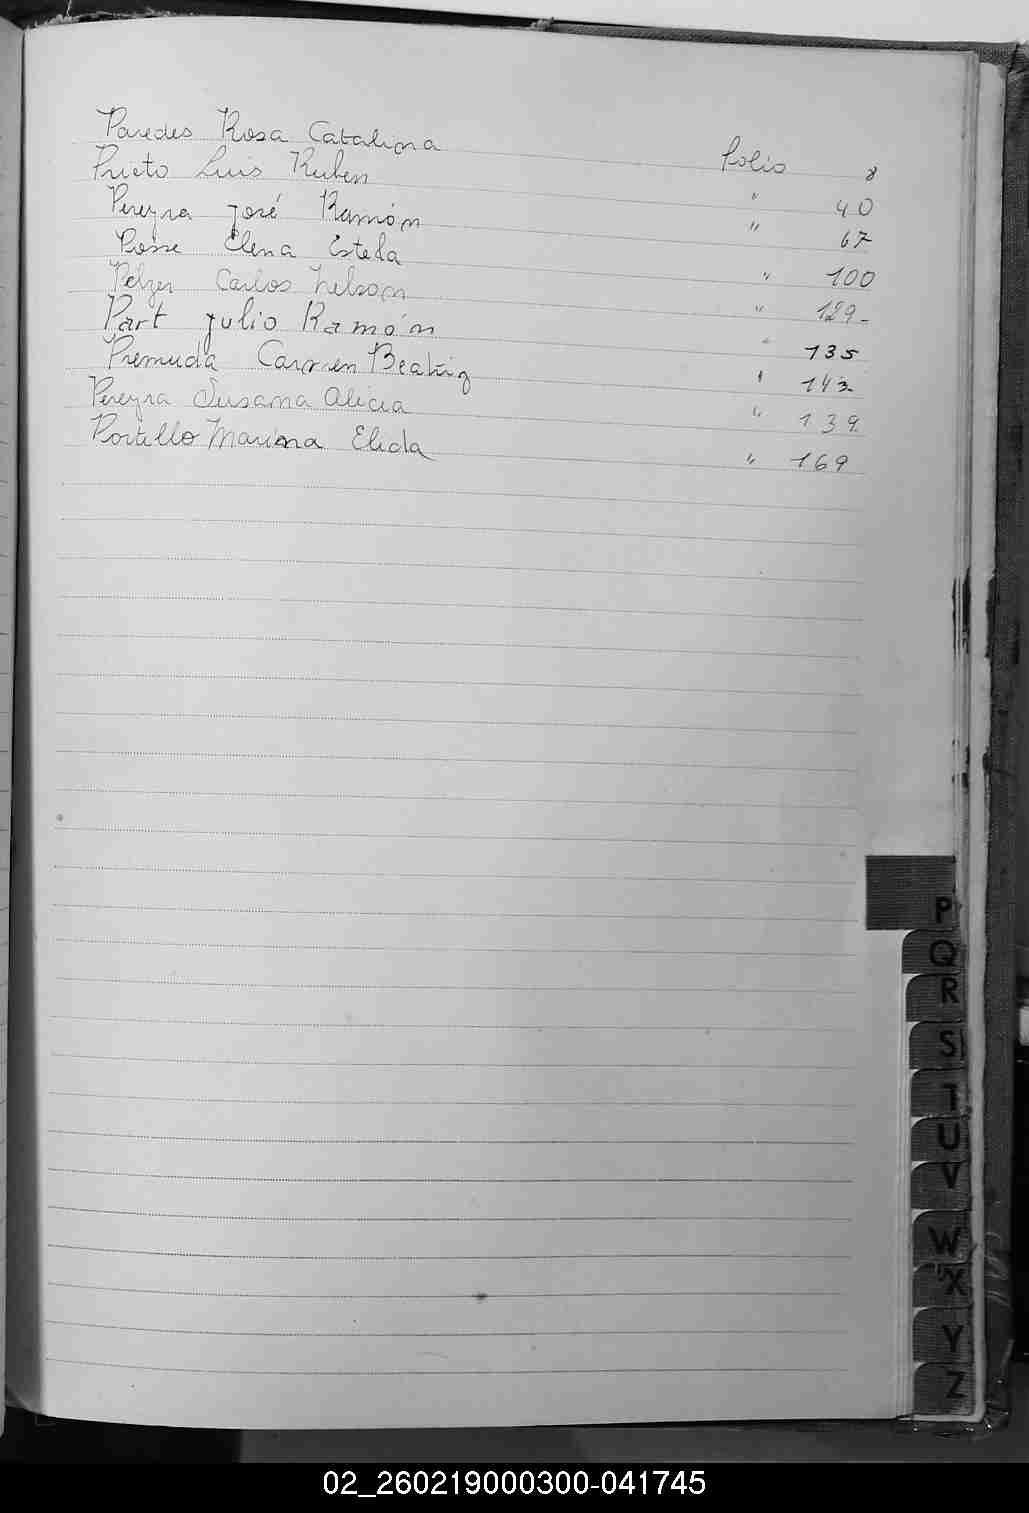 Paredes Rosa Catalina Folio 8
Prieto Luis Ruben " 40
Pereyra José Ramón " 67
Posse Elena Estela " 100
Pelzer Carlos Nelson " 129-
Part Julio Ramón " 135
Premuda Carmen Beatriz " 143
Pereyra Susana Alicia " 139
Portillo Marina Elida " 169
P
Q
R
S
T
U
V
W
X
Y
Z
02_260219000300-041745